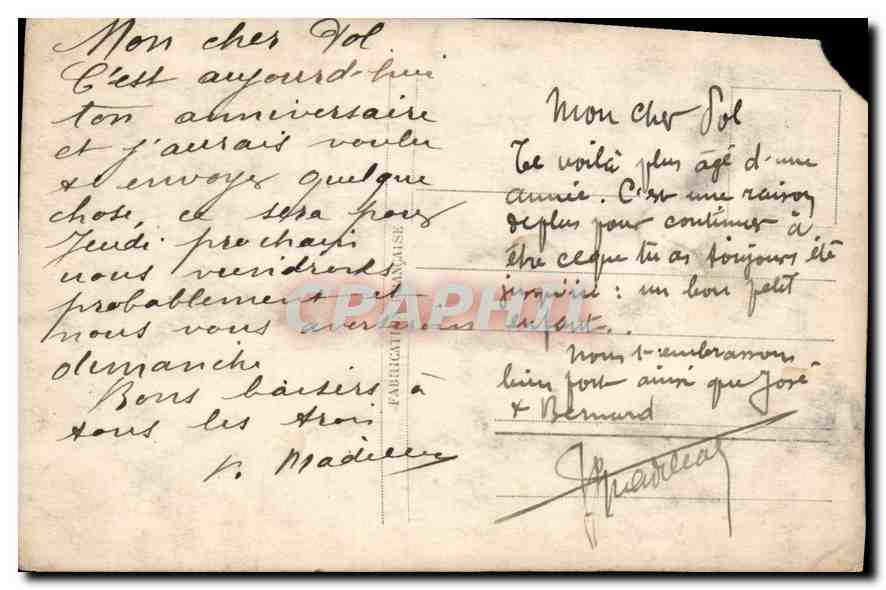 Mon cher Pol
C'est aujourd-hui
ton anniversaire
et j'aurais voulu
t envoyer quelque
chose, ce sera pour
Jeudi prochain
nous viendrons
probablement et
nous vous avertirons
dimanche
Bons baisers à
tous les trois
FABRICATION FRANÇAISE
Mon cher Pol
Te voilà plus âgé d'une
année. C'est une raison
de plus pour continuer à
être ce que tu as toujours été
jusqu'ici : un bon petit
enfant..
Nous t'embrassons
bien fort ainsi que José
+ Bernard
CPAPHIL